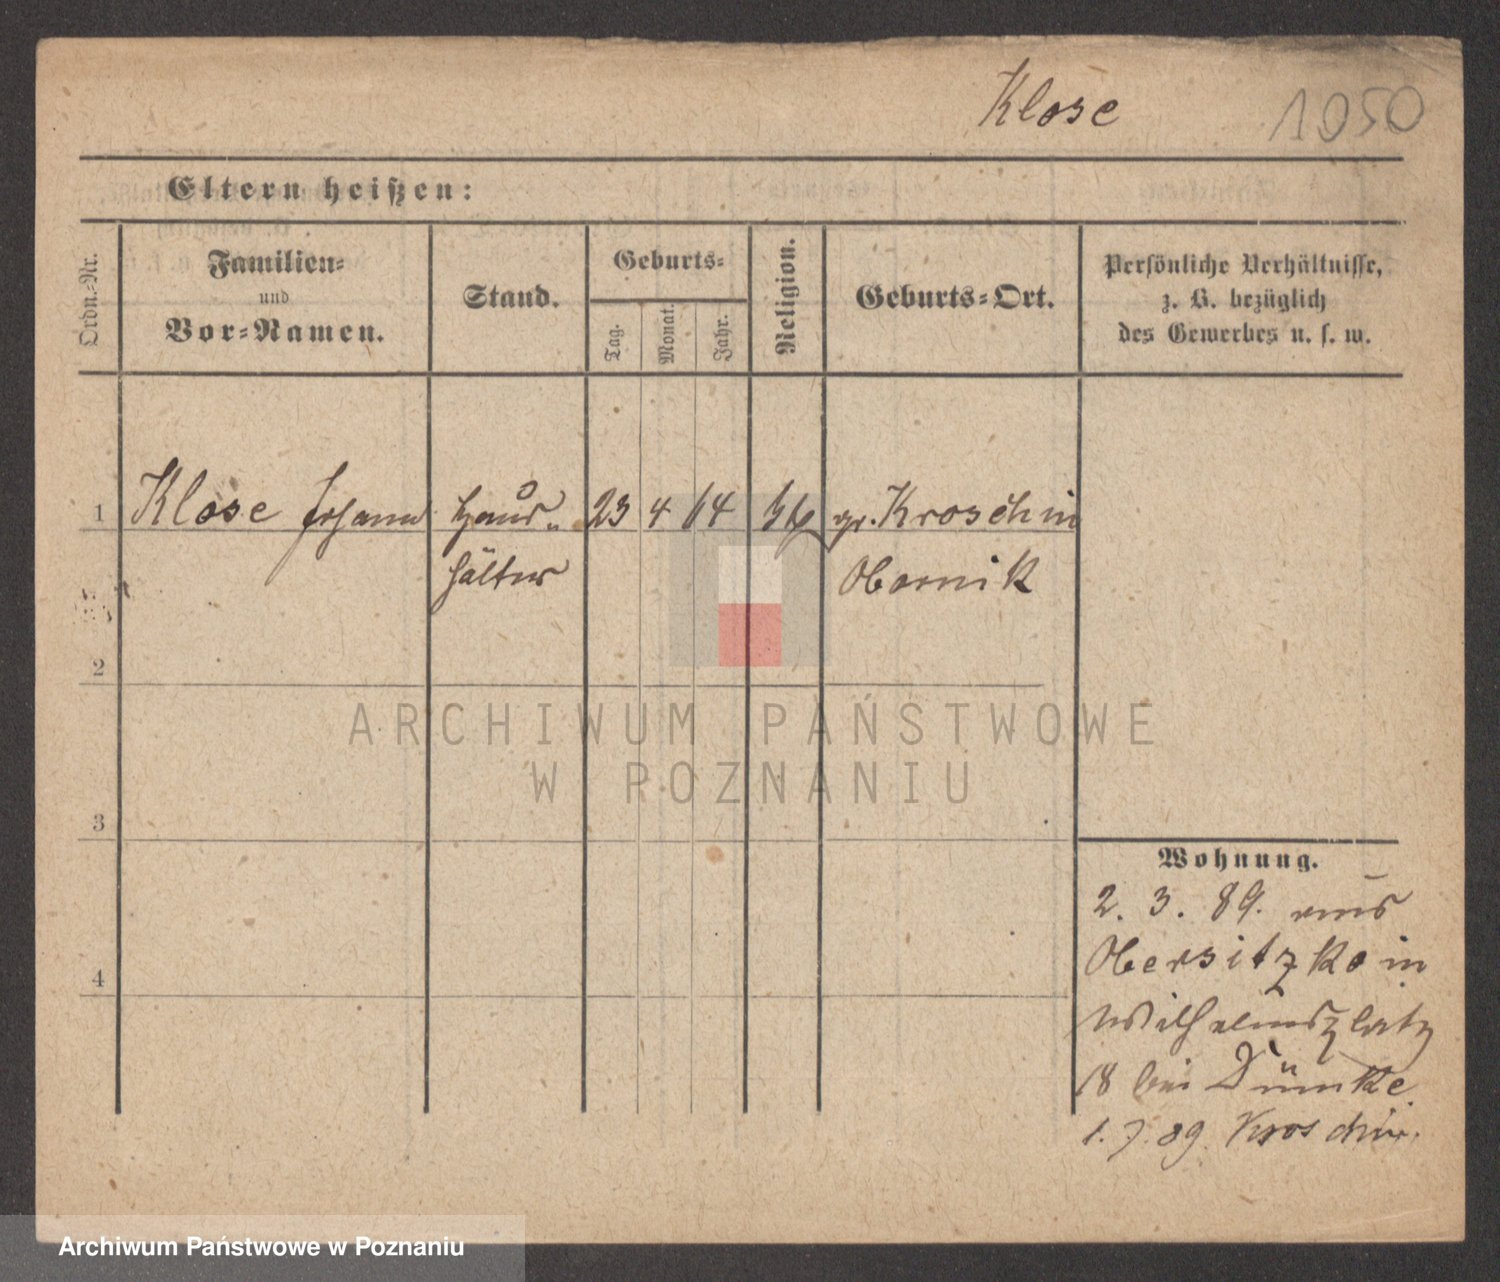 Klose 1050
Eltern heißen:
Ordn.-Nr.
Familien-
und
Vor-Namen.
Stand.
Geburts-
Tag.
Monat.
Jahr.
Religion.
Geburts-Ort.
Persönliche Verhältnisse,
z. B. bezüglich
des Gewerbes u. s. w.
1 Klose Johann Haus- 23 4 64 gr. Kroschin
hälter Obornik
2
3
4
Wohnung.
2. 3. 89. aus
Obersitzko in
Wilhelmsplatz
18 bei Dümke.
1. 7. 89. Kroschin.
ARCHIWUM PAŃSTWOWE
W POZNANIU
Archiwum Państwowe w Poznaniu